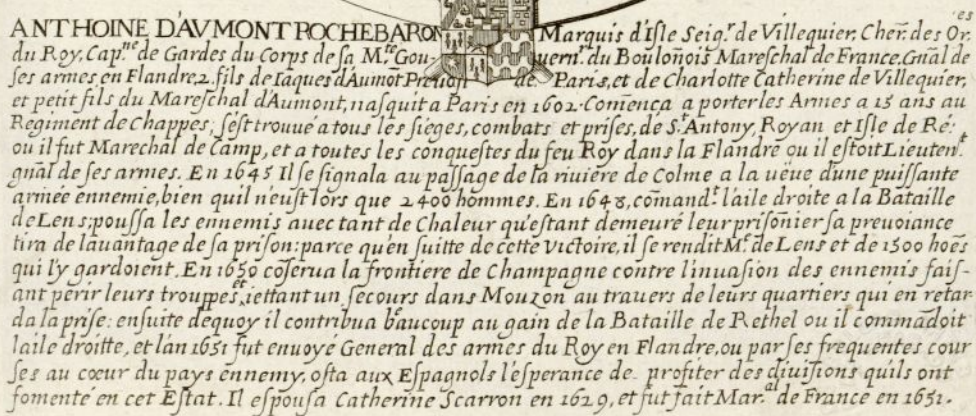 ANTHOINE D'AVMONT ROCHEBARON Marquis d'Isle Seig.r de Villequier, Cher. des Or.es
du Roy, Cap.ne de Gardes du Corps de sa M.té Gou- uern.r du Boulonois Mareschal de France, Gñal de
ses armes en Flandre, 2. fils de Iaques d'Aumot Preuost de Paris, et de Charlotte Catherine de Villequier,
et petit fils du Mareschal d'Aumont, nasquit a Paris en 1602. Comença a porter les Armes a 15 ans au
Regiment de Chappes; s'est trouué a tous les sieges, combats et prises, de S.t Antony, Royan et Isle de Ré:
ou il fut Marechal de Camp, et a toutes les conquestes du feu Roy dans la Flandre ou il estoit Lieuten.t
gñal de ses armes. En 1645 Il se signala au passage de la riuiere de Colme a la uëue d'une puissante
armée ennemie, bien quil n'eust lors que 2400 hommes. En 1648, cõmand.t l'aile droite a la Bataille
de Lens; poussa les ennemis auec tant de Chaleur qu'estant demeuré leur prisonier sa preuoiance
tira de lauantage de sa prison: parce qu'en suitte de cette victoire, il se rendit M.e de Lens et de 1500 hoẽs
qui l'y gardoient. En 1650 cõserua la frontiere de Champagne contre l'inuasion des ennemis fais-
ant perir leurs trouppes, et iettant un secours dans Mouzon au trauers de leurs quartiers qui en retar
da la prise: ensuite dequoy il contribua beaucoup au gain de la Bataille de Rethel ou il commãdoit
laile droitte, et lan 1651 fut enuoyé General des armes du Roy en Flandre, ou par ses frequentes cour
ses au cœur du pays ennemy, osta aux Espagnols l'esperance de profiter des diuisions quils ont
fomenté en cet Estat. Il espousa Catherine Scarron en 1629, et fut fait Mar.al de France en 1651.